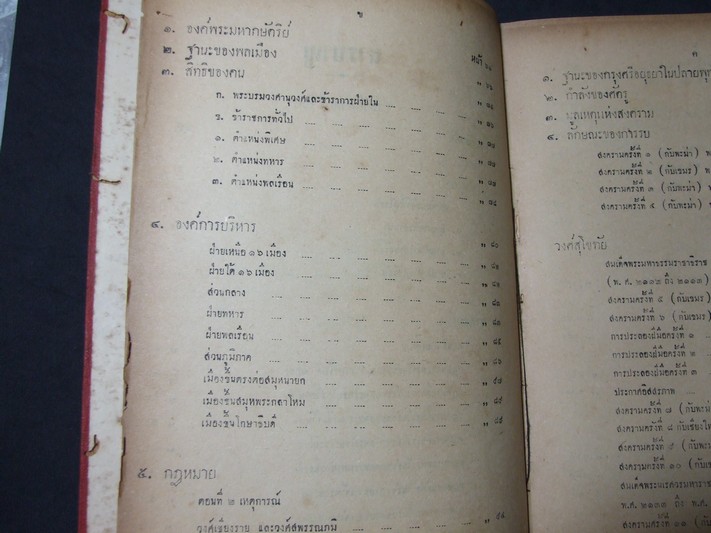 ข
๑. องค์พระมหากษัตริย์
๒. ฐานะของพลเมือง หน้า
๓. สิทธิของคน
ก. พระบรมวงศานุวงศ์และข้าราชการฝ่ายใน .... .... .... "
ข. ข้าราชการทั่วไป .... .... .... .... .... "
๑. ตำแหน่งพิเศษ .... .... .... .... .... "
๒. ตำแหน่งทหาร .... .... .... .... .... "
๓. ตำแหน่งพลเรือน .... .... .... .... .... "
๔. องค์การบริหาร
ฝ่ายเหนือ ๑๖ เมือง .... .... .... .... .... " ๘๐
ฝ่ายใต้ ๑๖ เมือง .... .... .... .... .... "
ส่วนกลาง .... .... .... .... .... .... "
ฝ่ายทหาร .... .... .... .... .... .... "
ฝ่ายพลเรือน .... .... .... .... .... "
ส่วนภูมิภาค .... .... .... .... .... " ๘๖
เมืองขึ้นตรงต่อสมุหนายก .... .... .... .... "
เมืองขึ้นสมุหพระกลาโหม .... .... .... .... "
เมืองขึ้นโกษาธิบดี .... .... .... .... "
๕. กฎหมาย
ตอนที่ ๒ เหตุการณ์
วงศ์เชียงราย และวงศ์สุพรรณภูมิ .... .... .... "
ค
๑. ฐานะของกรุงศรีอยุธยาในปลายพุท
๒. กำลังของศัตรู
๓. มูลเหตุแห่งสงคราม
๔. ลักษณะของการรบ
สงครามครั้งที่ ๑ (กับพะม่า)
สงครามครั้งที่ ๒ (กับเขมร)
สงครามครั้งที่ ๓ (กับพะม่า)
สงครามครั้งที่ ๔ (กับพะม่า)
วงศ์สุโขทัย
สมเด็จพระมหาธรรมราชาธิราช
(พ. ศ. ๒๑๑๒ ถึง ๒๑๓๓)
สงครามครั้งที่ ๕ (กับเขมร)
สงครามครั้งที่ ๖ (กับเขมร
การประลองฝีมือครั้งที่ ๑
การประลองฝีมือครั้งที่ ๒
การประลองฝีมือครั้งที่ ๓
ประกาศอิสสรภาพ ....
สงครามครั้งที่ ๗ (กับพะม่า
สงครามครั้งที่ ๘ กับเชียงให
สงครามครั้งที่ ๙ (กับพม
สงครามครั้งที่ ๑๐ (กับเข
สมเด็จพระนเรศวรมหาราช
พ. ศ. ๒๑๓๓ ถึง พ.
สงครามครั้งที่ ๑๑